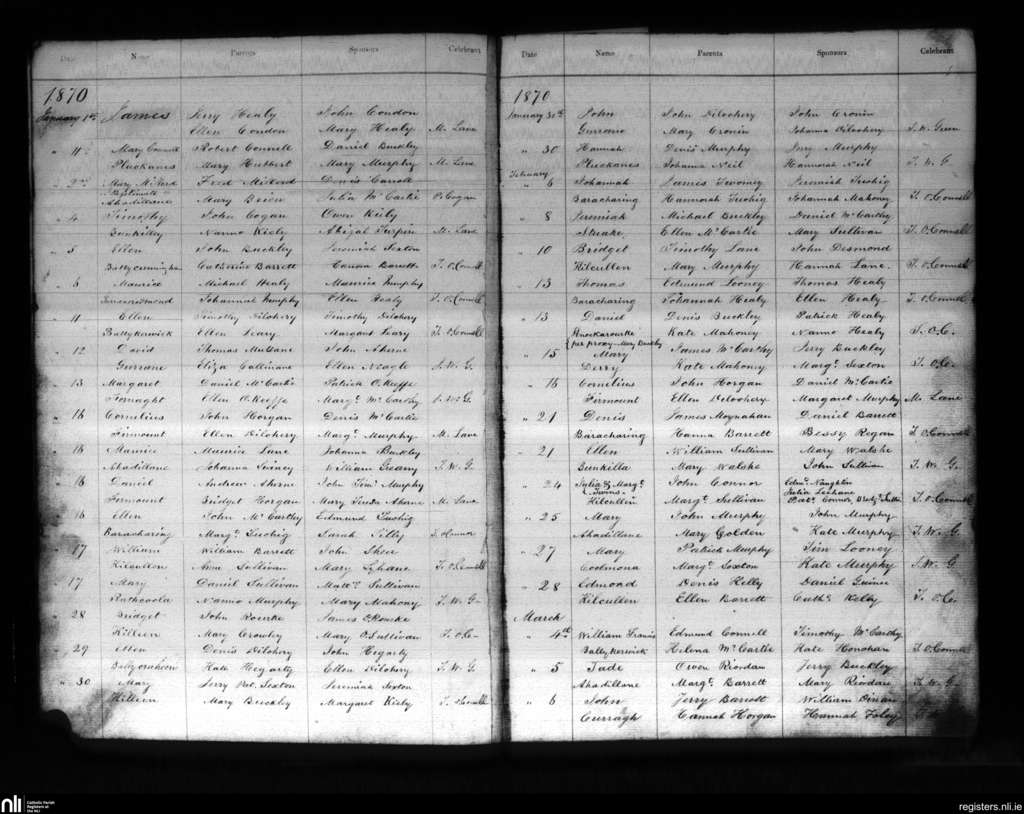 Date Name Parents Sponsors Celebrant
1870
January 1st James Jerry Healy John Condon
Ellen Condon Mary Healy M. Lane
" 11 Mary Connell Robert Connell Daniel Buckley
Pluckanes Mary Hubbert Mary Murphy M. Lane
Denis Carroll
Ahadillane Mary Brien Julia McCartie P. Cogan
" 4 Timothy John Cogan Owen Kiely
Bunkilla Nanno Kiely Abigal Turpin M. Lane
" 5 Ellen John Buckley Jeremiah Sexton
Ballycunningham Catherine Barrett Barrett T. O.Connell
" 6 Maurice Michael Healy Maurice Murphy
Johannah Murphy Ellen Healy T. O.Connell
" 11 Ellen Timothy Dilohery Timothy Dilohery
Ballykerwick Ellen Leary Margaret Leary T. O.Connell
" 12 David Thomas Mullane John Aherne
Gurrane Eliza Callinane Ellen Neagle T. W. G.
" 13 Margaret Daniel McCartie Patrick O.Keeffe
Fornaght Ellen O.Keeffe Margt. McCarthy T. W. G.
" 16 Cornelius John Horgan Denis McCartie
Firmount Ellen Dilohery Margt. Murphy M. Lane
" 16 Maurice Maurice Lane Johanna Buckley
Ahadillane Johanna William T. W. G.
" 16 Daniel Andrew Aherne John Murphy
Firmount Bridget Horgan Mary Ahane M. Lane
" 16 Ellen John McCarthy Edmund Tuohig
Baracharing Margt. Tuohig Sarah Tilly
" 17 William William Barrett John Shea
Kilcullen Anne Sullivan Mary Lehane T. O.Connell
" 17 Mary Daniel Sullivan Matt. Sullivan
Rathcoola Nanno Murphy Mary Mahony T. W. G.
" 28 Bridget John Rourke James O'Rourke
Killeen Mary Crowley Mary O.Sullivan T. O.C.
" 29 Ellen Denis Dilohery John Hegarty
Kate Hegarty Ellen Dilohery T. W. G.
" 30 Mary Jerry Sexton Jeremiah Sexton
Killeen Mary Buckley Margaret Kiely T. O.Connell
Date Name Parents Sponsors Celebrant
1870
January 30th John John Dilohery John Cronin
Gurrane Mary Cronin Johanna Dilohery T. W. Green
" 30 Hannah Denis Murphy Jerry Murphy
Pluckanes Johanna Neil Hannorah Neil T. W. G
February
" 6 Johannah James Twomey Jeremiah Tuohig
Baracharing Hannorah Tuohig Johannah Mahony T. O.Connell
" 8 Jeremiah Michael Buckley Daniel McCarthy
Stuake Ellen McCartie Mary Sullivan T. O.Connell
" 10 Bridget Timothy Lane John Desmond
Kilcullen Mary Murphy Hannah Lane. T. O.Connell
" 13 Thomas Edmund Looney Thomas Healy
Baracharing Johannah Healy Ellen Healy T. O.Connell
" 13 Daniel Denis Buckley Patrick Healy
Knockarourke Kate Mahoney Nanno Healy T. O.C.
per proxy Mary Buckley
" 15 Mary James McCarthy Jerry Buckley
Derry Kate Mahoney Margt. Sexton T. O.C.
" 16 Cornelius John Horgan Daniel McCartie
Firmount Ellen Delochery Margaret Murphy M. Lane
" 21 Denis James Moynahan Daniel Barrett
Baracharing Hanna Barrett Bessy Regan T. O.Connell
" 21 Ellen William Sullivan Mary Walshe
Bunkilla Mary Walshe John Sullivan T. W. G.
" 24 Julia & Margt. John Connor Edmd. Naughten
Twins. Julia Lechane
Kilcullen Margt. Sullivan Patk. Connor, T. O.Connell
" 25 Mary John Murphy John Murphy
Ahadillane Mary Golden " Kate Murphy T. W. G.
" 27 Mary Patrick Murphy Tim Looney
Coolmona Margt. Sexton Kate Murphy T. W. G
" 28 Edmond Denis Kelly Daniel Guinee
Kilcullen Ellen Barrett Cathe. Kelly T. O.C.
March
" 4th William Francis Edmund Connell Timothy McCarthy
Ballykerwick Helena McCartie Kate Honohan T. O.Connell
" 5 Jade Owen Riordan Jerry Buckley
Ahadillane Margt. Barrett Mary Riordan T. W. G
" 6 John Jerry Barrett William Dinan
Curragh Hannah Horgan Hannah Foley
nli Catholic Parish
Registers at
the NLI
registers.nli.ie